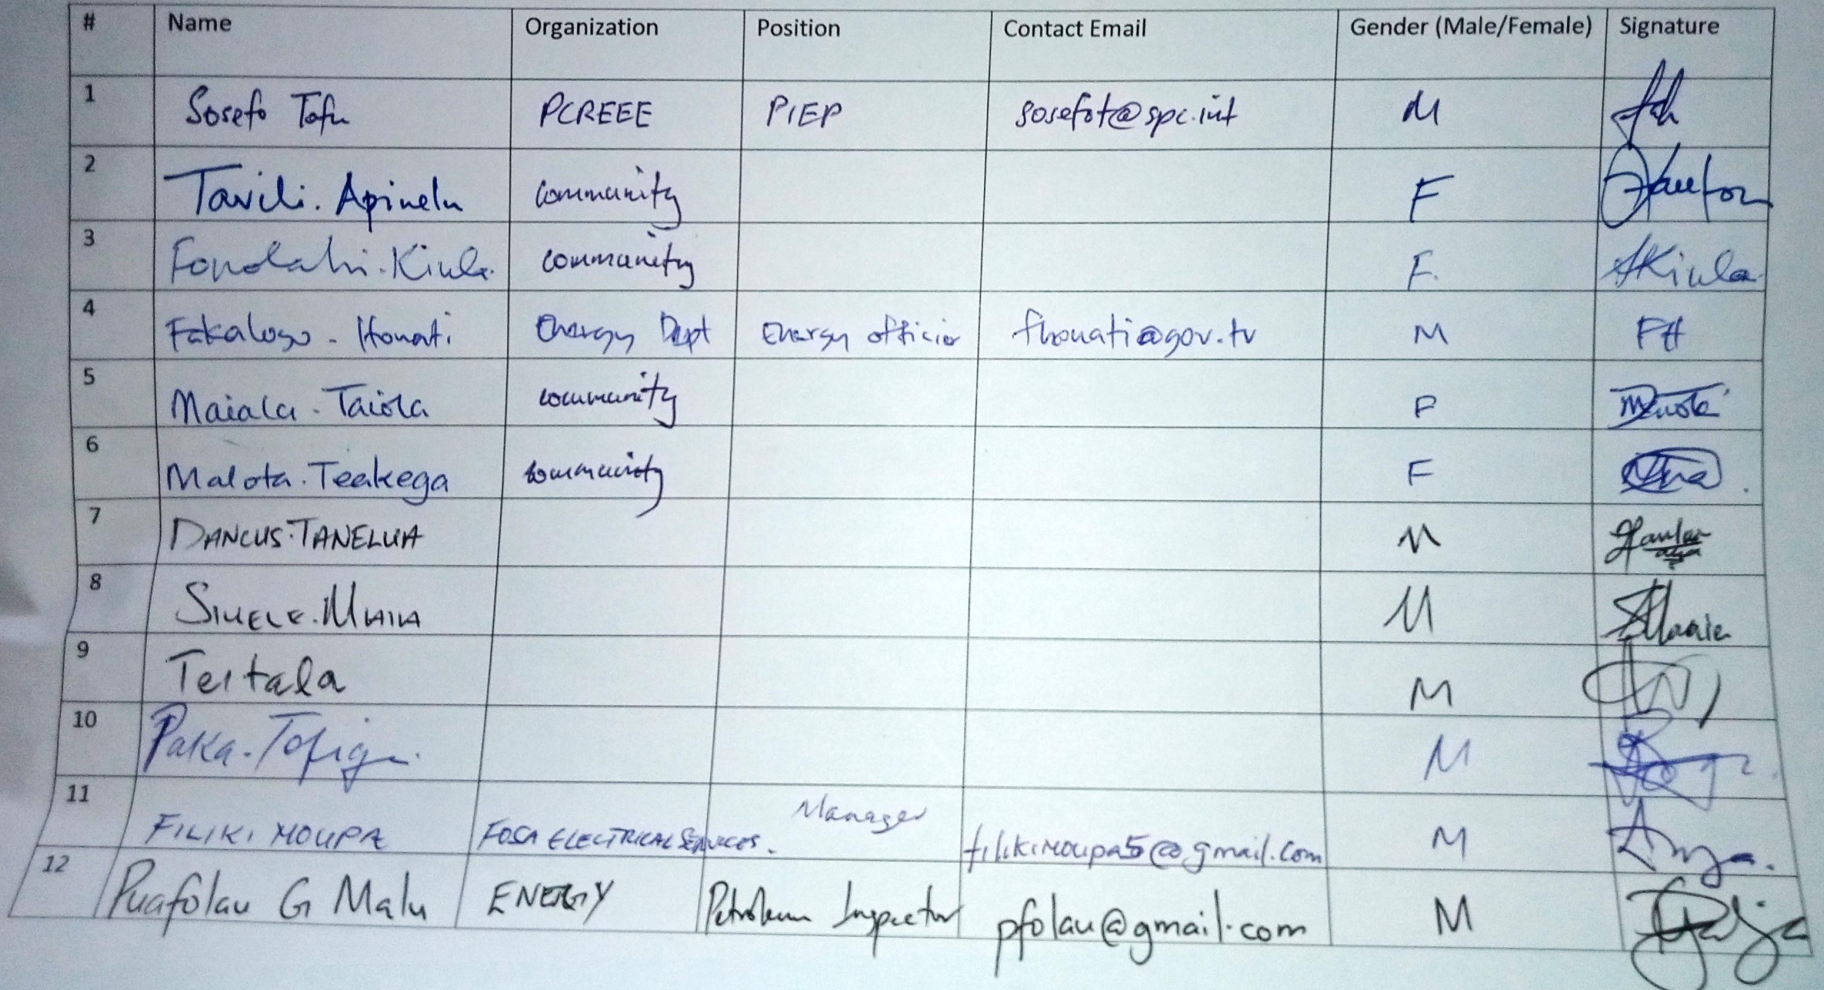 # Name Organization Position Contact Email Gender (Male/Female) Signature
1 Sosefo Tofu PCREEE PIEP sosefot@spc.int M
2 Tavili. Apinelu community F
3 Kiula community F. Kiula
4 Honati Energy Dept Energy officier fhonati@gov.tv M FH
5 Maiala. Taiola community F
6 Malota. Teakega community F
7 DANCUS. TANELUA M
8 M
9 Teitala M
10 PAKA. M
11 FILIKI MOUPA FOSA ELECTRICAL SERVICES. Manager filikimoupa5@gmail.com M
12 Puafolau G Malu ENERGY Petroleum Inspector pfolau@gmail.com M